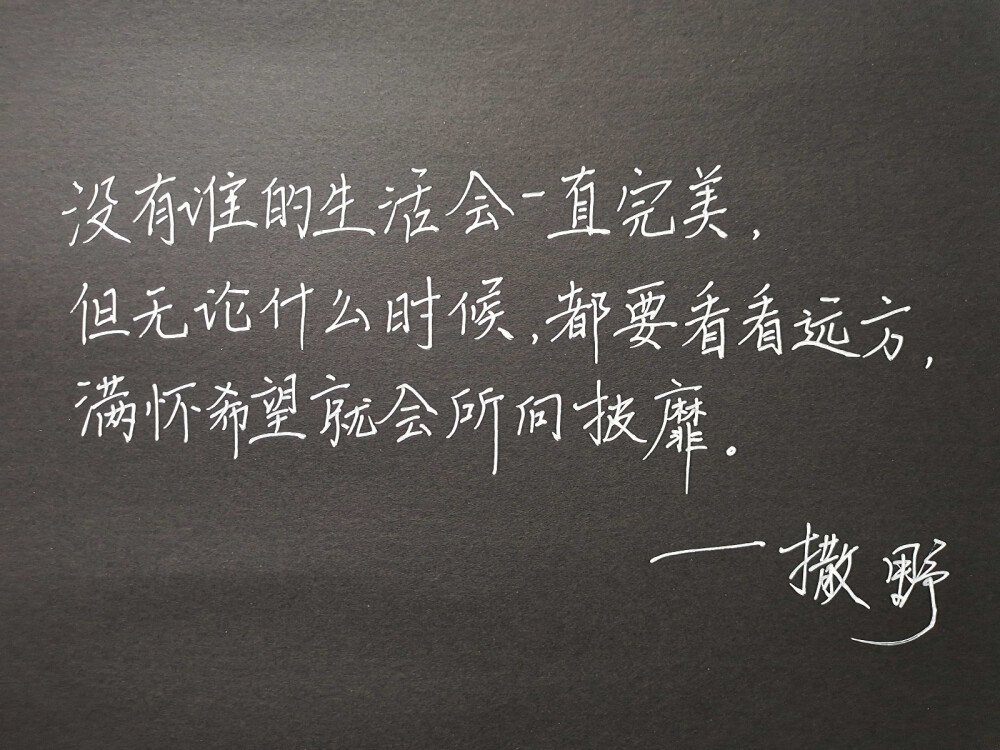 没有谁的生活会一直完美，
但无论什么时候，都要看看远方，
满怀希望就会所向披靡。
——撒野